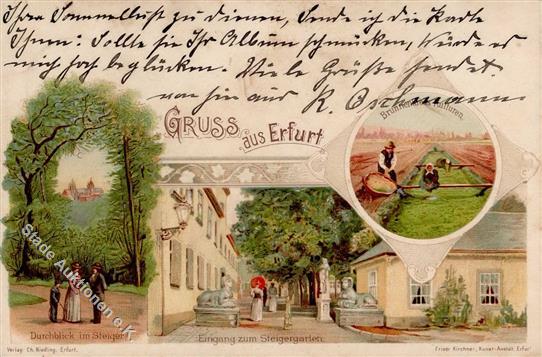 Ihre Sammellust zu dienen, Sende ich die Karte
Ihnen: Sollte sie Ihr Album schmücken, Würde es
mich hoch beglücken. Viele Grüße sendet
von hier aus K. Oschmann
GRUSS aus Erfurt.
Brunnenkresskulturen.
Durchblick im Steiger
Eingang zum Steigergarten.
Verlag Ch. Riedling, Erfurt.
Friedr. Kirchner, Kunst-Anstalt, Erfurt
Stade Auktion e.K.